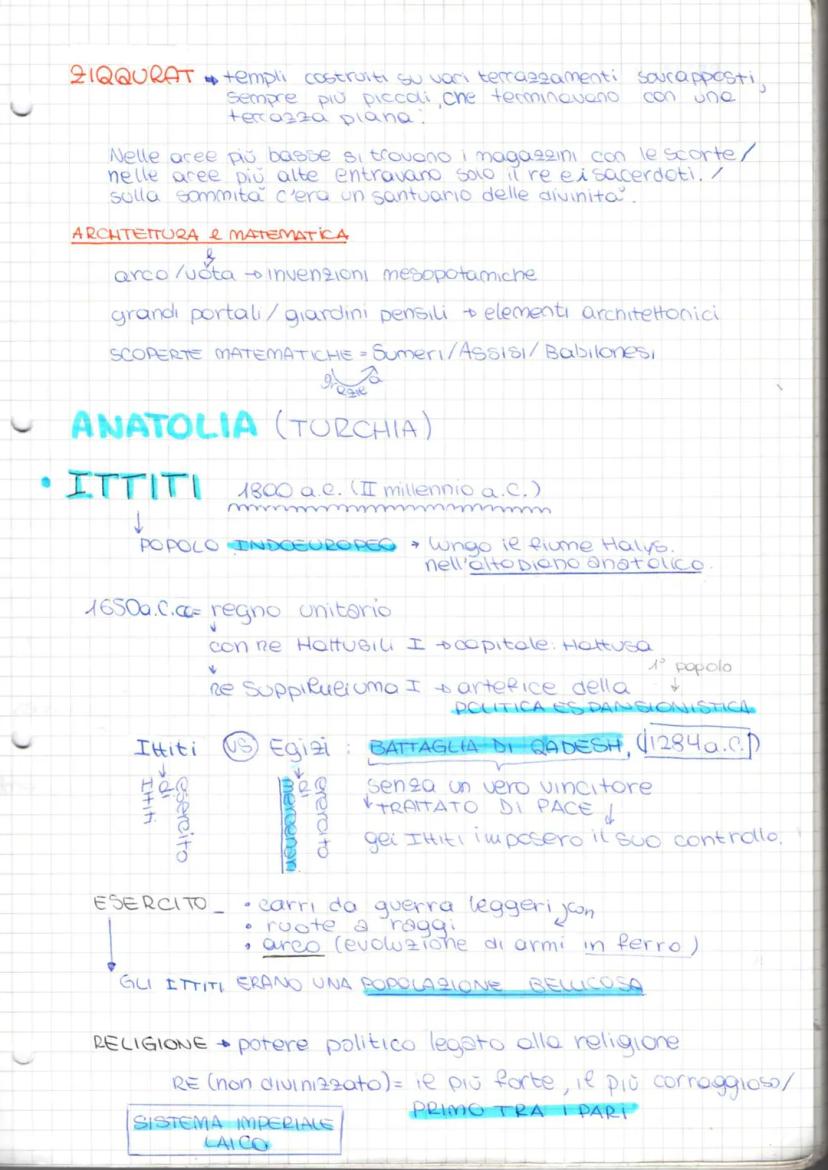 ZIQQURAT → templi costruiti su vari terrazzamenti sovrapposti,
sempre più piccoli, che terminavano con una
terrazza piana.
Nelle aree più basse si trovano i magazzini con le scorte/
nelle aree più alte entravano solo il re e i sacerdoti. /
sulla sommità c'era un santuario delle divinità.
ARCHITETTURA e MATEMATICA
arco/volta → invenzioni mesopotamiche
grandi portali/giardini pensili → elementi architettonici
SCOPERTE MATEMATICHE = Sumeri/Assisi/Babilonesi
grazie a
ANATOLIA (TURCHIA)
• ITTITI 1800 a.C. (II millennio a.C.)
↓
POPOLO INDOEUROPEO → lungo il fiume Halys.
nell'altopiano anatolico.
1650a.C. ca= regno unitario
↓
con re Hattusili I → capitale: Hattusa
↓ 1° popolo
re Suppiluliuma I → artefice della ↓
POLITICA ESPANSIONISTICA
Ittiti VS Egizi : BATTAGLIA DI QADESH, (1284 a.C.)
esercito di Ittiti
esercito di mercenari
senza un vero vincitore
↓ TRATTATO DI PACE ↓
gli Ittiti imposero il suo controllo.
ESERCITO_ • carri da guerra leggeri con
• ruote a raggi
• arco (evoluzione di armi in ferro)
↓
GLI ITTITI ERANO UNA POPOLAZIONE BELLICOSA
RELIGIONE → potere politico legato alla religione
RE (non divinizzato)= il più forte, il più corraggioso/
PRIMO TRA I PARI
SISTEMA IMPERIALE
LAICO